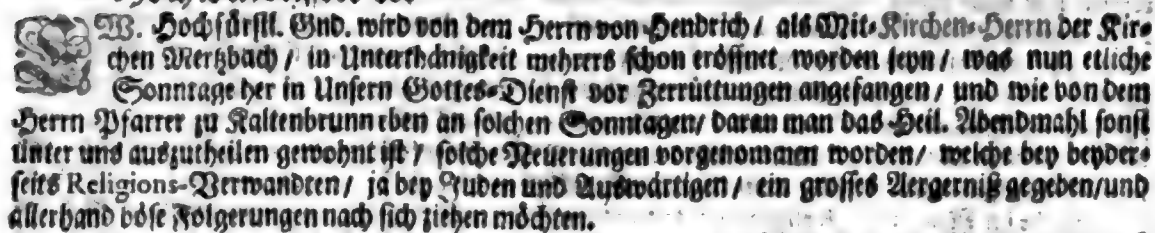 EW. Hochfürstl. Gnd. wird von dem Herrn von Hendrich / als Mit-Kirchen-Herrn der Kir-
chen Mertzbach / in Unterthänigkeit mehrers schon eröffnet worden seyn / was nun etliche
Sonntage her in Unsern Gottes-Dienst vor Zerrüttungen angefangen / und wie von dem
Herrn Pfarrer zu Kaltenbrunn eben an solchen Sonntagen / daran man das Heil. Abendmahl sonst
unter uns auszutheilen gewohnt ist / solche Neuerungen vorgenommen worden / welche bey beyder-
seits Religions-Verwandten / ja bey Juden und Auswärtigen / ein grosses Aergerniß gegeben / und
allerhand böse Folgerungen nach sich ziehen möchten.